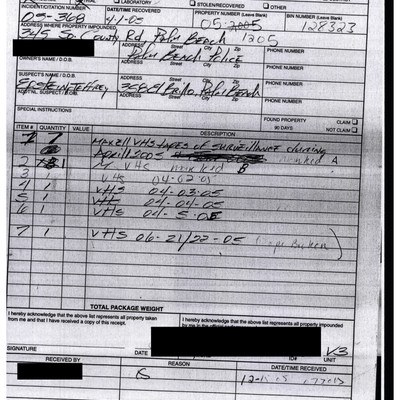 LABORATORY STOLEN/RECOVERED OTHER
INCIDENT/CITATION NUMBER DATE/TIME RECOVERED PROPERTY NUMBER (Leave Blank) BIN NUMBER (Leave Blank)
05-368 4-1-05 05-2005 128323
ADDRESS WHERE PROPERTY IMPOUNDED Street City Zip PHONE NUMBER
345 So. County Rd, Palm Beach 1205
ADDRESS Street City Zip PHONE NUMBER
Palm Beach Police
OWNER'S NAME / D.O.B. ADDRESS Street City Zip PHONE NUMBER
SUSPECT'S NAME / D.O.B. ADDRESS Street City Zip PHONE NUMBER
358 El Brillo, Palm Beach
ADDITNL. SUSPECT / D.O.B. Street City Zip PHONE NUMBER
SPECIAL INSTRUCTIONS FOUND PROPERTY CLAIM
90 DAYS NOT CLAIM
ITEM # QUANTITY VALUE DESCRIPTION
1 Maxell VHS tapes of surveillance during
April 2005 marked A
2 1 VHS marked B
3 1 VHS 04-02-05
4 1 VHS 04-03-05
5 1 VHS 04-04-05
6 1 VHS 04-5-05
7 1 VHS 06-21/22-05
TOTAL PACKAGE WEIGHT
I hereby acknowledge that the above list represents all property taken
from me and that I have received a copy of this receipt.
I hereby acknowledge that the above list represents all property impounded
by me in the official
SIGNATURE DATE ID# UNIT
V3
RECEIVED BY REASON DATE/TIME RECEIVED